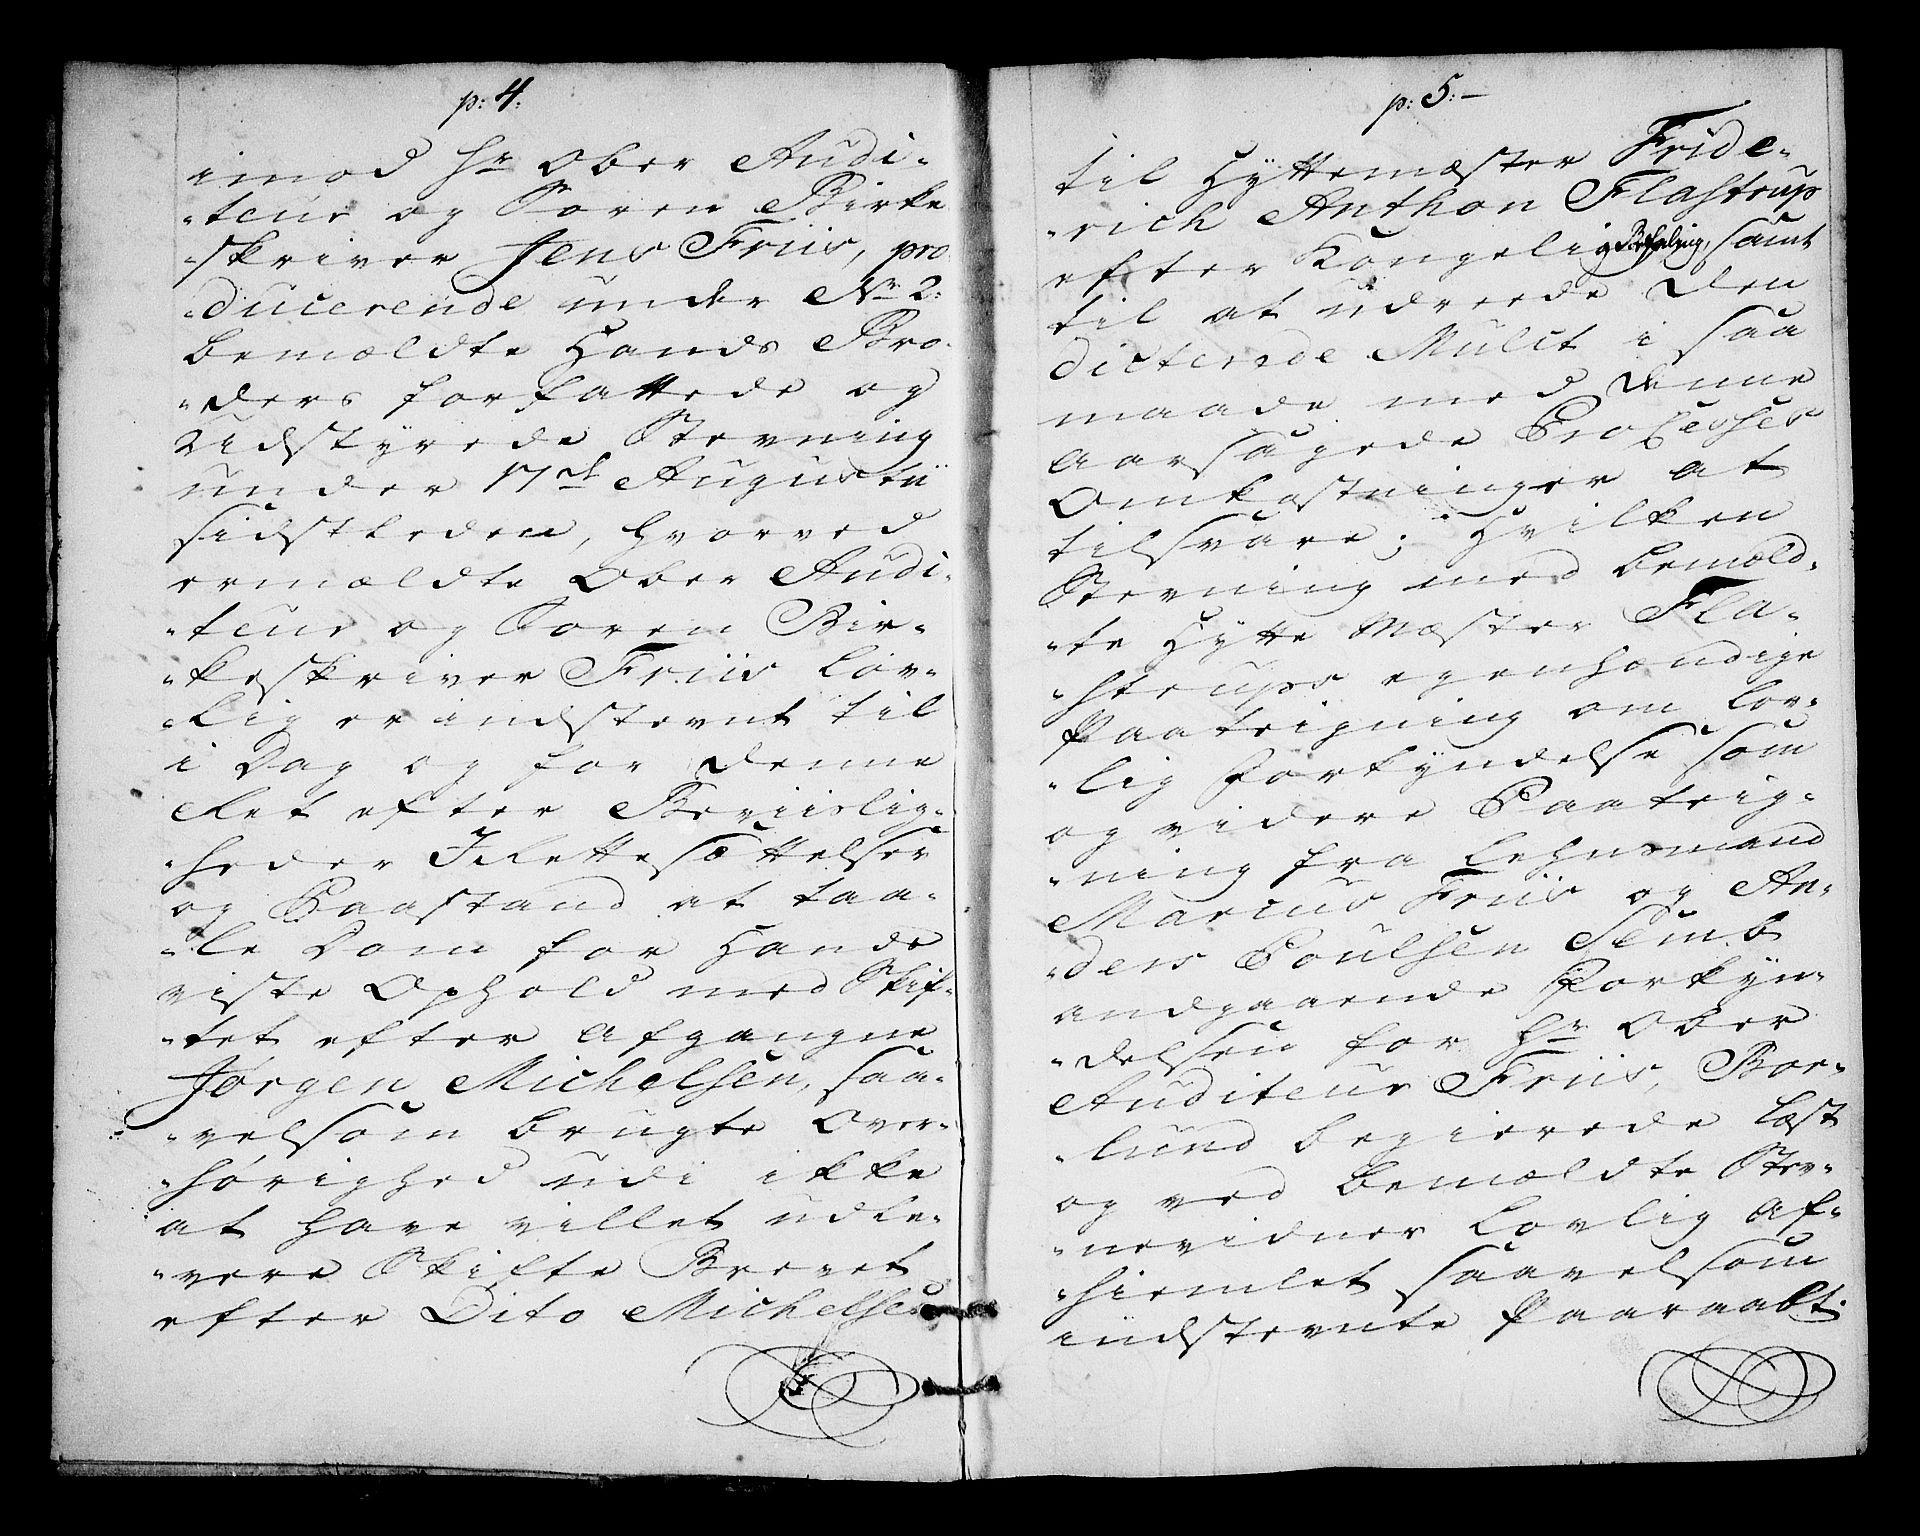 p: 4.
imod Hr Ober Audi-
-teur og Soren Birke
-skriver Jens Friis, pro
-ducerende under No 2:
bemældte Hands Bro-
-ders forfattede og
Udstÿrede Stevning
under 17de Augustii
sidstleden, hvorved
ermældte Ober Audi-
-teur og Soren Bir-
-keskriver Friis lov-
-lig er indstevnt til
i Dag og for denne
Ret efter Beviislig-
-heder Irettesættelser
og Paastand at taa-
-le Dom for Hands
viste Ophold med Skif-
-tet efter afgangne
Jørgen Michelsen, saa-
-velsom brugte Over-
-hørighed udi ikke
at have villet udle-
-vere Skifte Brevet
efter Dito Michelsen
p: 5:-
til Hÿttemæster Fride-
-rich Anthon Flastrup
efter Kongelig Befaling, samt
til at udreede den
dicterede Mulct i saa
maade med denne
aarsagede Processes
Omkostninger at
tilsvare; Hvilken
Stevning med bemæld-
-te Hÿtte Mæster Fla-
-strups egenhændige
Paateigning om lov-
-lig Forkÿndelse som
og videre Paateig-
-ning fra Lehnsmand
Marcus Friis og An-
-ders Poulsen Semb
andgaaende Forkÿn-
-delsen for Hr Ober
Auditeur Friis, Bor-
-lund begierede læst
og ved bemældte Stev-
-nevidner lovlig af-
-hiemlet saavelsom
indstevnte paaraabt.